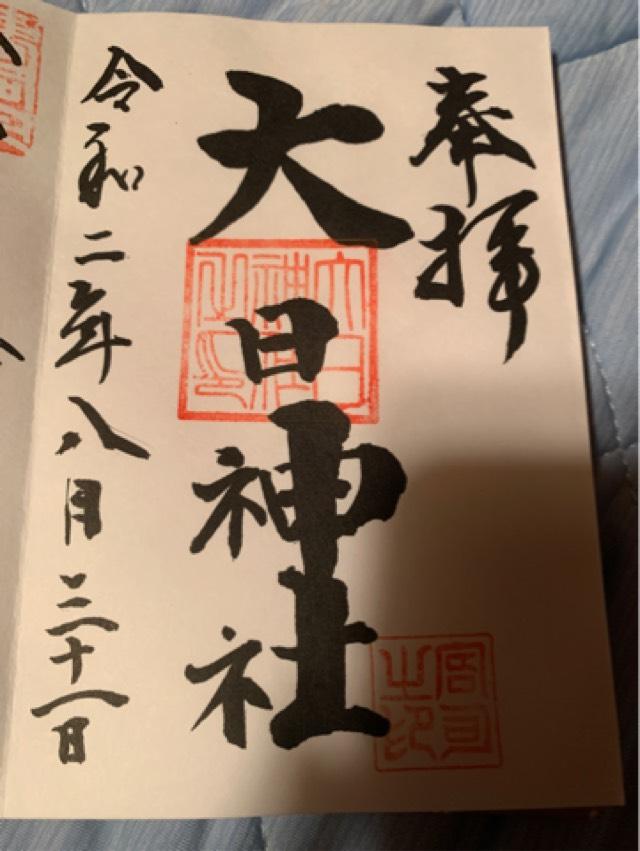 奉拝
大日神社
大日神社之印
宮司之印
令和二年八月三十一日